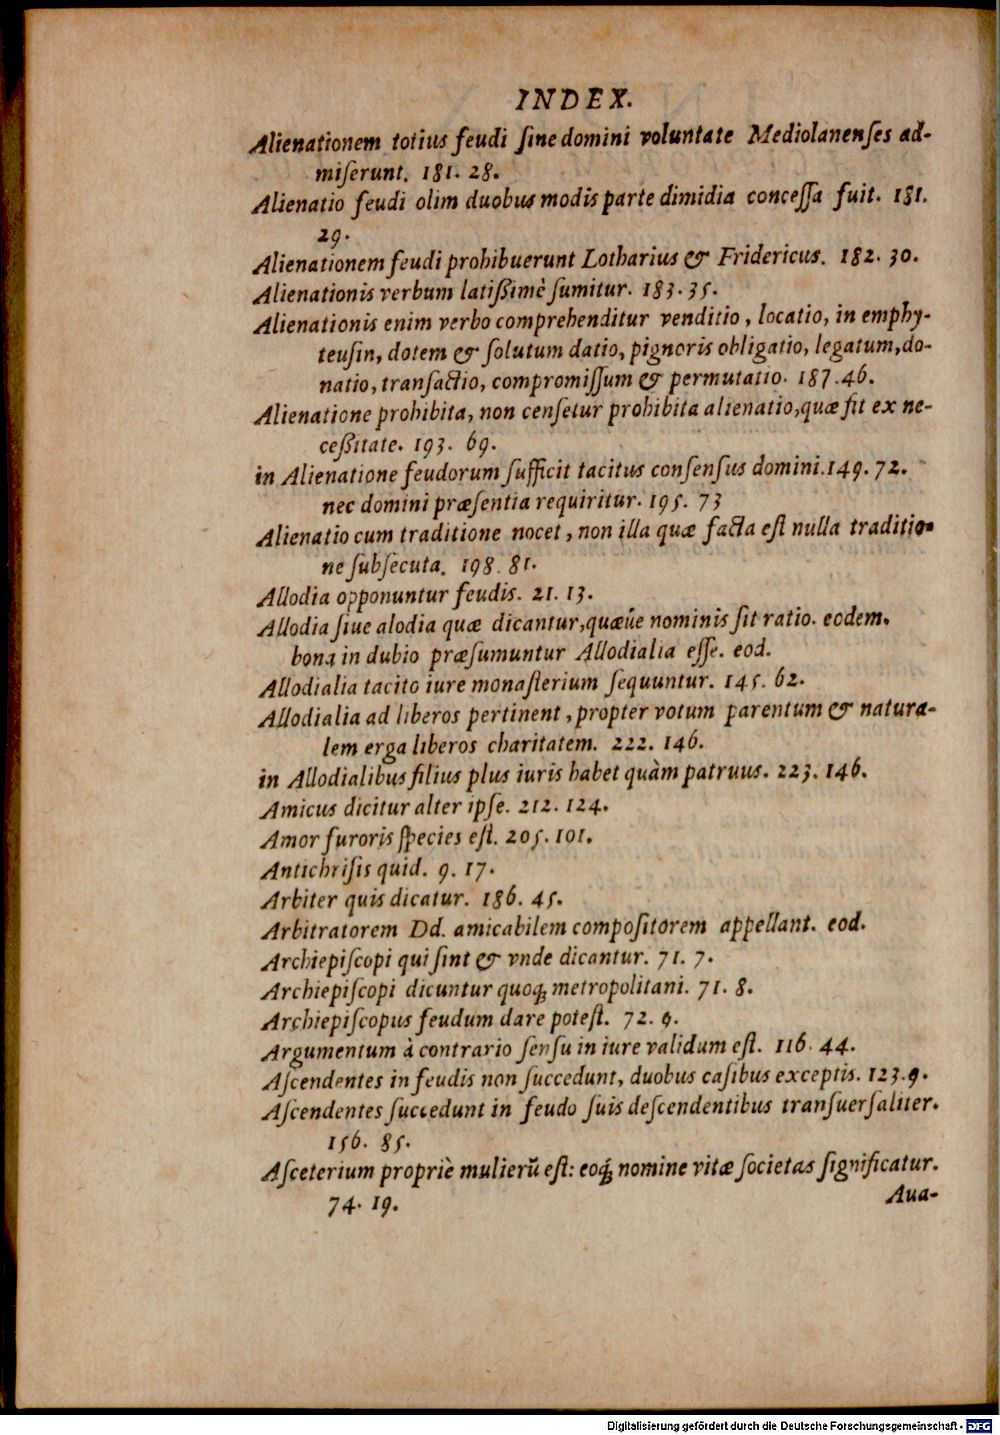 INDEX.
Alienationem totius feudi ſine domini voluntate Mediolanenſes ad-
miſerunt. 181. 28.
Alienatio feudi olim duobus modis parte dimidia conceſſa fuit. 181.
29.
Alienationem feudi prohibuerunt Lotharius & Fridericus. 182. 30.
Alienationis verbum latißimè ſumitur. 183. 35.
Alienationis enim verbo comprehenditur venditio, locatio, in emphy-
teuſin, dotem & ſolutum datio, pignoris obligatio, legatum, do-
natio, tranſactio, compromiſſum & permutatio. 187. 46.
Alienatione prohibita, non cenſetur prohibita alienatio, quæ fit ex ne-
ceßitate. 193. 69.
in Alienatione feudorum ſufficit tacitus conſenſus domini. 149. 72.
nec domini præſentia requiritur. 195. 73
Alienatio cum traditione nocet, non illa quæ facta eſt nulla traditio-
ne ſubſecuta. 198. 81.
Allodia opponuntur feudis. 21. 13.
Allodia ſiue alodia quæ dicantur, quæúe nominis ſit ratio. eodem.
bona in dubio præſumuntur Allodialia eſſe. eod.
Allodialia tacito iure monaſterium ſequuntur. 145. 62.
Allodialia ad liberos pertinent, propter votum parentum & natura-
lem erga liberos charitatem. 222. 146.
in Allodialibus filius plus iuris habet quàm patruus. 223. 146.
Amicus dicitur alter ipſe. 212. 124.
Amor furoris ſpecies eſt. 205. 101.
Antichriſis quid. 9. 17.
Arbiter quis dicatur. 186. 45.
Arbitratorem Dd. amicabilem compoſitorem appellant. eod.
Archiepiſcopi qui ſint & vnde dicantur. 71. 7.
Archiepiſcopi dicuntur quoq; metropolitani. 71. 8.
Archiepiſcopus feudum dare poteſt. 72. 9.
Argumentum à contrario ſenſu in iure validum eſt. 116. 44.
Aſcendentes in feudis non ſuccedunt, duobus caſibus exceptis. 123. 9.
Aſcendentes ſuccedunt in feudo ſuis deſcendentibus tranſuerſaliter.
156. 85.
Aſceterium propriè mulierū eſt: eoq́; nomine vitæ ſocietas ſignificatur.
74. 19.
Aua-
Digitalisierung gefördert durch die Deutsche Forschungsgemeinschaft - DFG